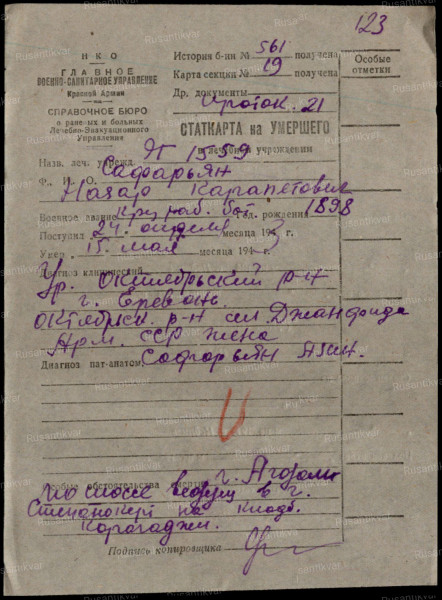 123
НКО
ГЛАВНОЕ
ВОЕННО-САНИТАРНОЕ УПРАВЛЕНИЕ
Красной Армии
СПРАВОЧНОЕ БЮРО
о раненых и больных
Лечебно-Эвакуационного
Управления
История б-ни № 561 получена
Карта секции № 19 получена
Др. документы
Проток. 21
Особые
отметки
СТАТКАРТА на УМЕРШЕГО
в лечебном учреждении
Назв. леч. учрежд. ЭГ 1559
Ф. И. О. Сафарьян
Назар Карапетович
Военное звание раб. бат. Год. рождения 1898
Поступил 24. апреля месяца 194 г.
Умер 15. мая месяца 194 г.
Диагноз клинический
Ур. Октябрьский р-н
г. Ереван.
Октябрьск. р-н сел Джанфида
Арм. ССР жена
Диагноз пат-анатом. Сафарьян
Особые обстоятельства смерти г.
по шоссе ведущ в г.
Степанокерт на кладб.
Подпись копировщика
Rusantikvar